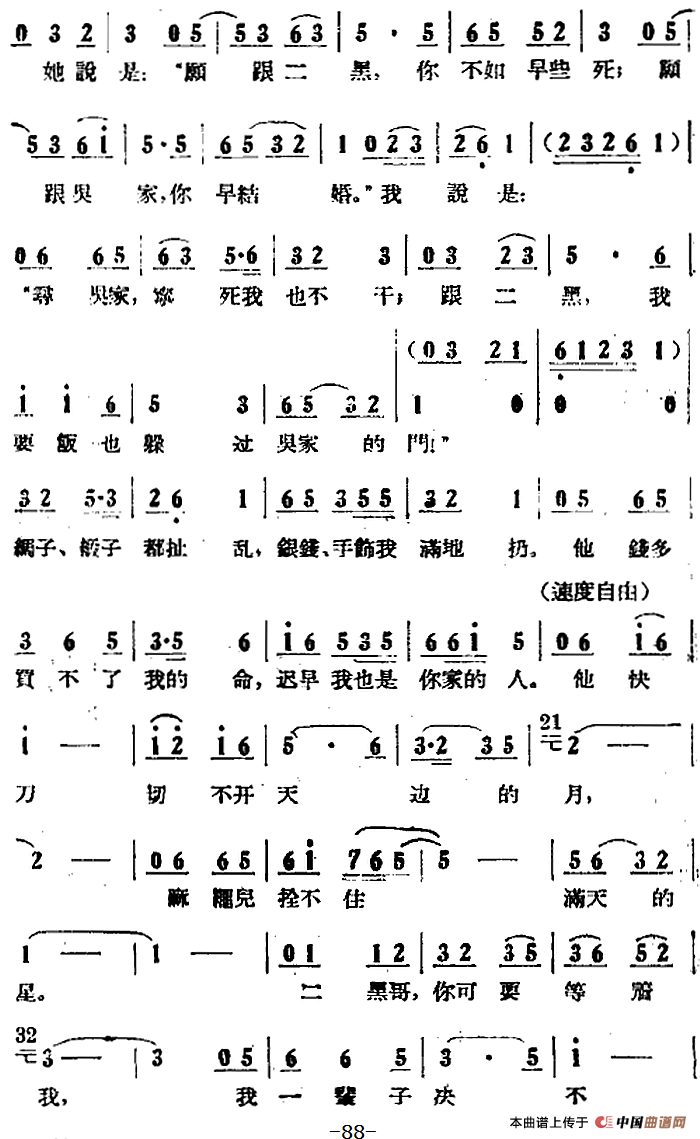 0 3 2 | 3 0 5 | 5 3 6 3 | 5 · 5 | 6 5 5 2 | 3 0 5 |
她說是："願跟二黑，你不如早些死；願
5 3 6 i | 5 · 5 | 6 5 3 2 | 1 0 2 3 | 2 6 1 | (2 3 2 6 1) |
跟吳家，你早結婚。"我說是：
0 6 6 5 | 6 3 5·6 | 3 2 3 | 0 3 2 3 | 5 · 6 |
"尋吳家，寧死我也不干；跟二黑，我
(0 3 2 1 | 6 1 2 3 1)
i i 6 | 5 3 | 6 5 3 2 | 1 0 | 0 0 |
要飯也躲过吳家的門！"
3 2 5·3 | 2 6 1 | 6 5 3 5 5 | 3 2 1 | 0 5 6 5 |
綢子、緞子都扯乱，銀錢、手飾我滿地扔。他錢多
（速度自由）
3 6 5 | 3·5 6 | i 6 5 3 5 | 6 6 i 5 | 0 6 i 6 |
買不了我的命，迟早我也是你家的人。他快
i — | i 2 i 6 | 5 · 6 | 3·2 3 5 | 21 2 — |
刀切不开天边的月，
2 — | 0 6 6 5 | 6 i 7 6 5 | 5 — | 5 6 3 2 |
麻繩兒拴不住滿天的
1 — | 1 — | 0 1 1 2 | 3 2 3 5 | 3 6 5 2 |
星。二黑哥，你可要等
32 3 — | 3 0 5 | 6 6 5 | 3 · 5 | i — |
我，我一輩子决不
-88-
本曲谱上传于 中国曲谱网